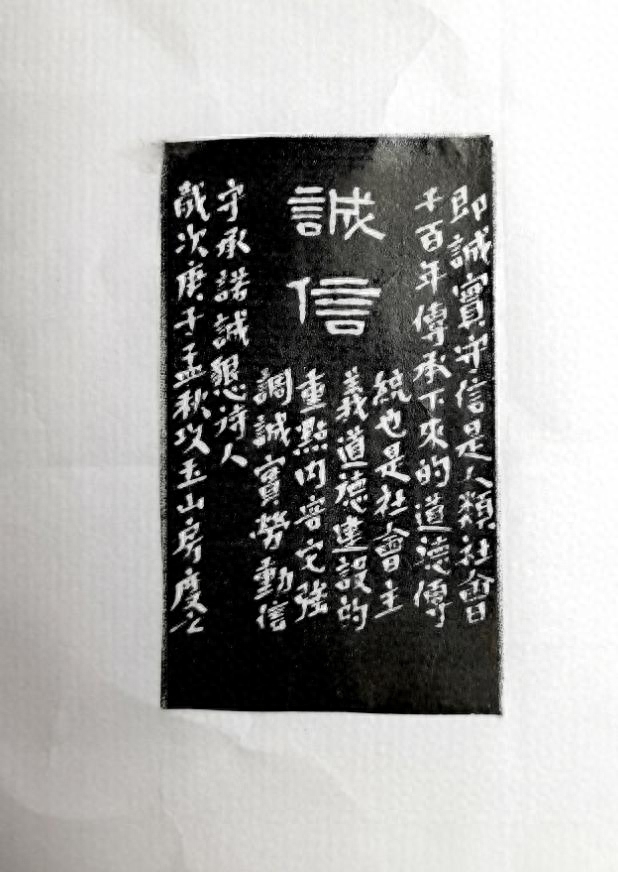 誠信
即誠實守信是人類社會
千百年傳承下來的道德傳
統也是社會主
義道德建設的
重點内容它強
調誠實勞動信
守承諾誠懇待人
歲次庚子孟秋攻玉山房度之